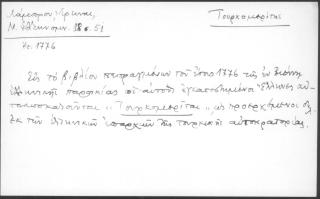 Λάμπρου, Νέος Ελλην.
Μ. Ελληνομν. 18. σ. 51
Τουρκομερίτης
Ἔτ. 1776
Εἰς τὸ βιβλίον πεπραγμένων τοῦ ἔτους 1776 τῆς ἐν Βιέννῃ
ἑλληνικῆς παροικίας οἱ αὐτόθι ἐγκατεστημένοι Ἕλληνες αὐ-
τοαποκαλοῦνται "Τουρκομερῖται" ὡς προερχόμενοι
ἐκ τῶν ἑλληνικῶν ἐπαρχιῶν τῆς τουρκικῆς αὐτοκρατορίας.